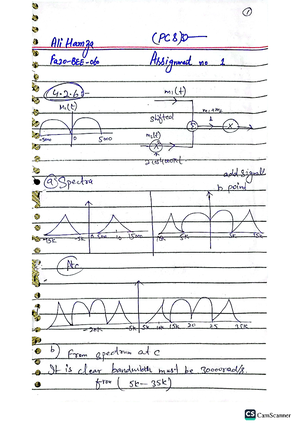 ①
Ali Hamza (PCS)
Fa20-BEE-060 Assignment no 1
4.2.6:-
m₁(t)
m₁(t)
shifted
m₁+m₂
m₂(t)
-5000 0 5000
a) Spectra
add signal
b point
-15k -5k 0 5000 10 15000 -15k 5k 5k 15k
At c
-20k -5k 5k 10k 15k 20 25 35k
b) From spectrum at c
It is clear bandwidth must be 30000rad/s
from (5k-35k)
CS CamScanner